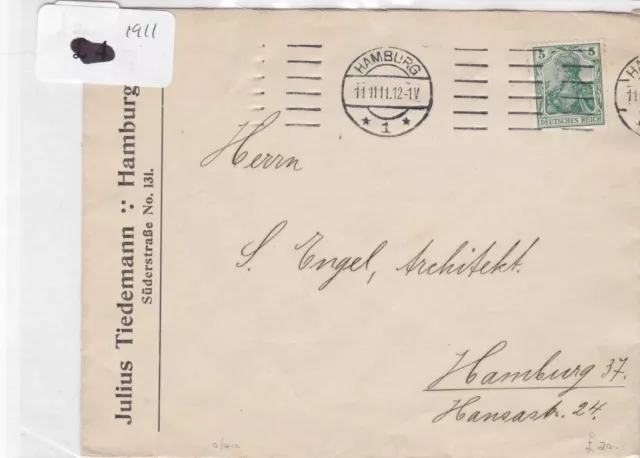 1911
Julius Tiedemann :: Hamburg
Süderstraße No. 131.
HAMBURG
11.11.11.12-1V
* 1 *
5 5
DEUTSCHES REICH
HA
11
Herrn
S. Engel, Architekt.
Hamburg 37.
Hansastr. 24.
£20-